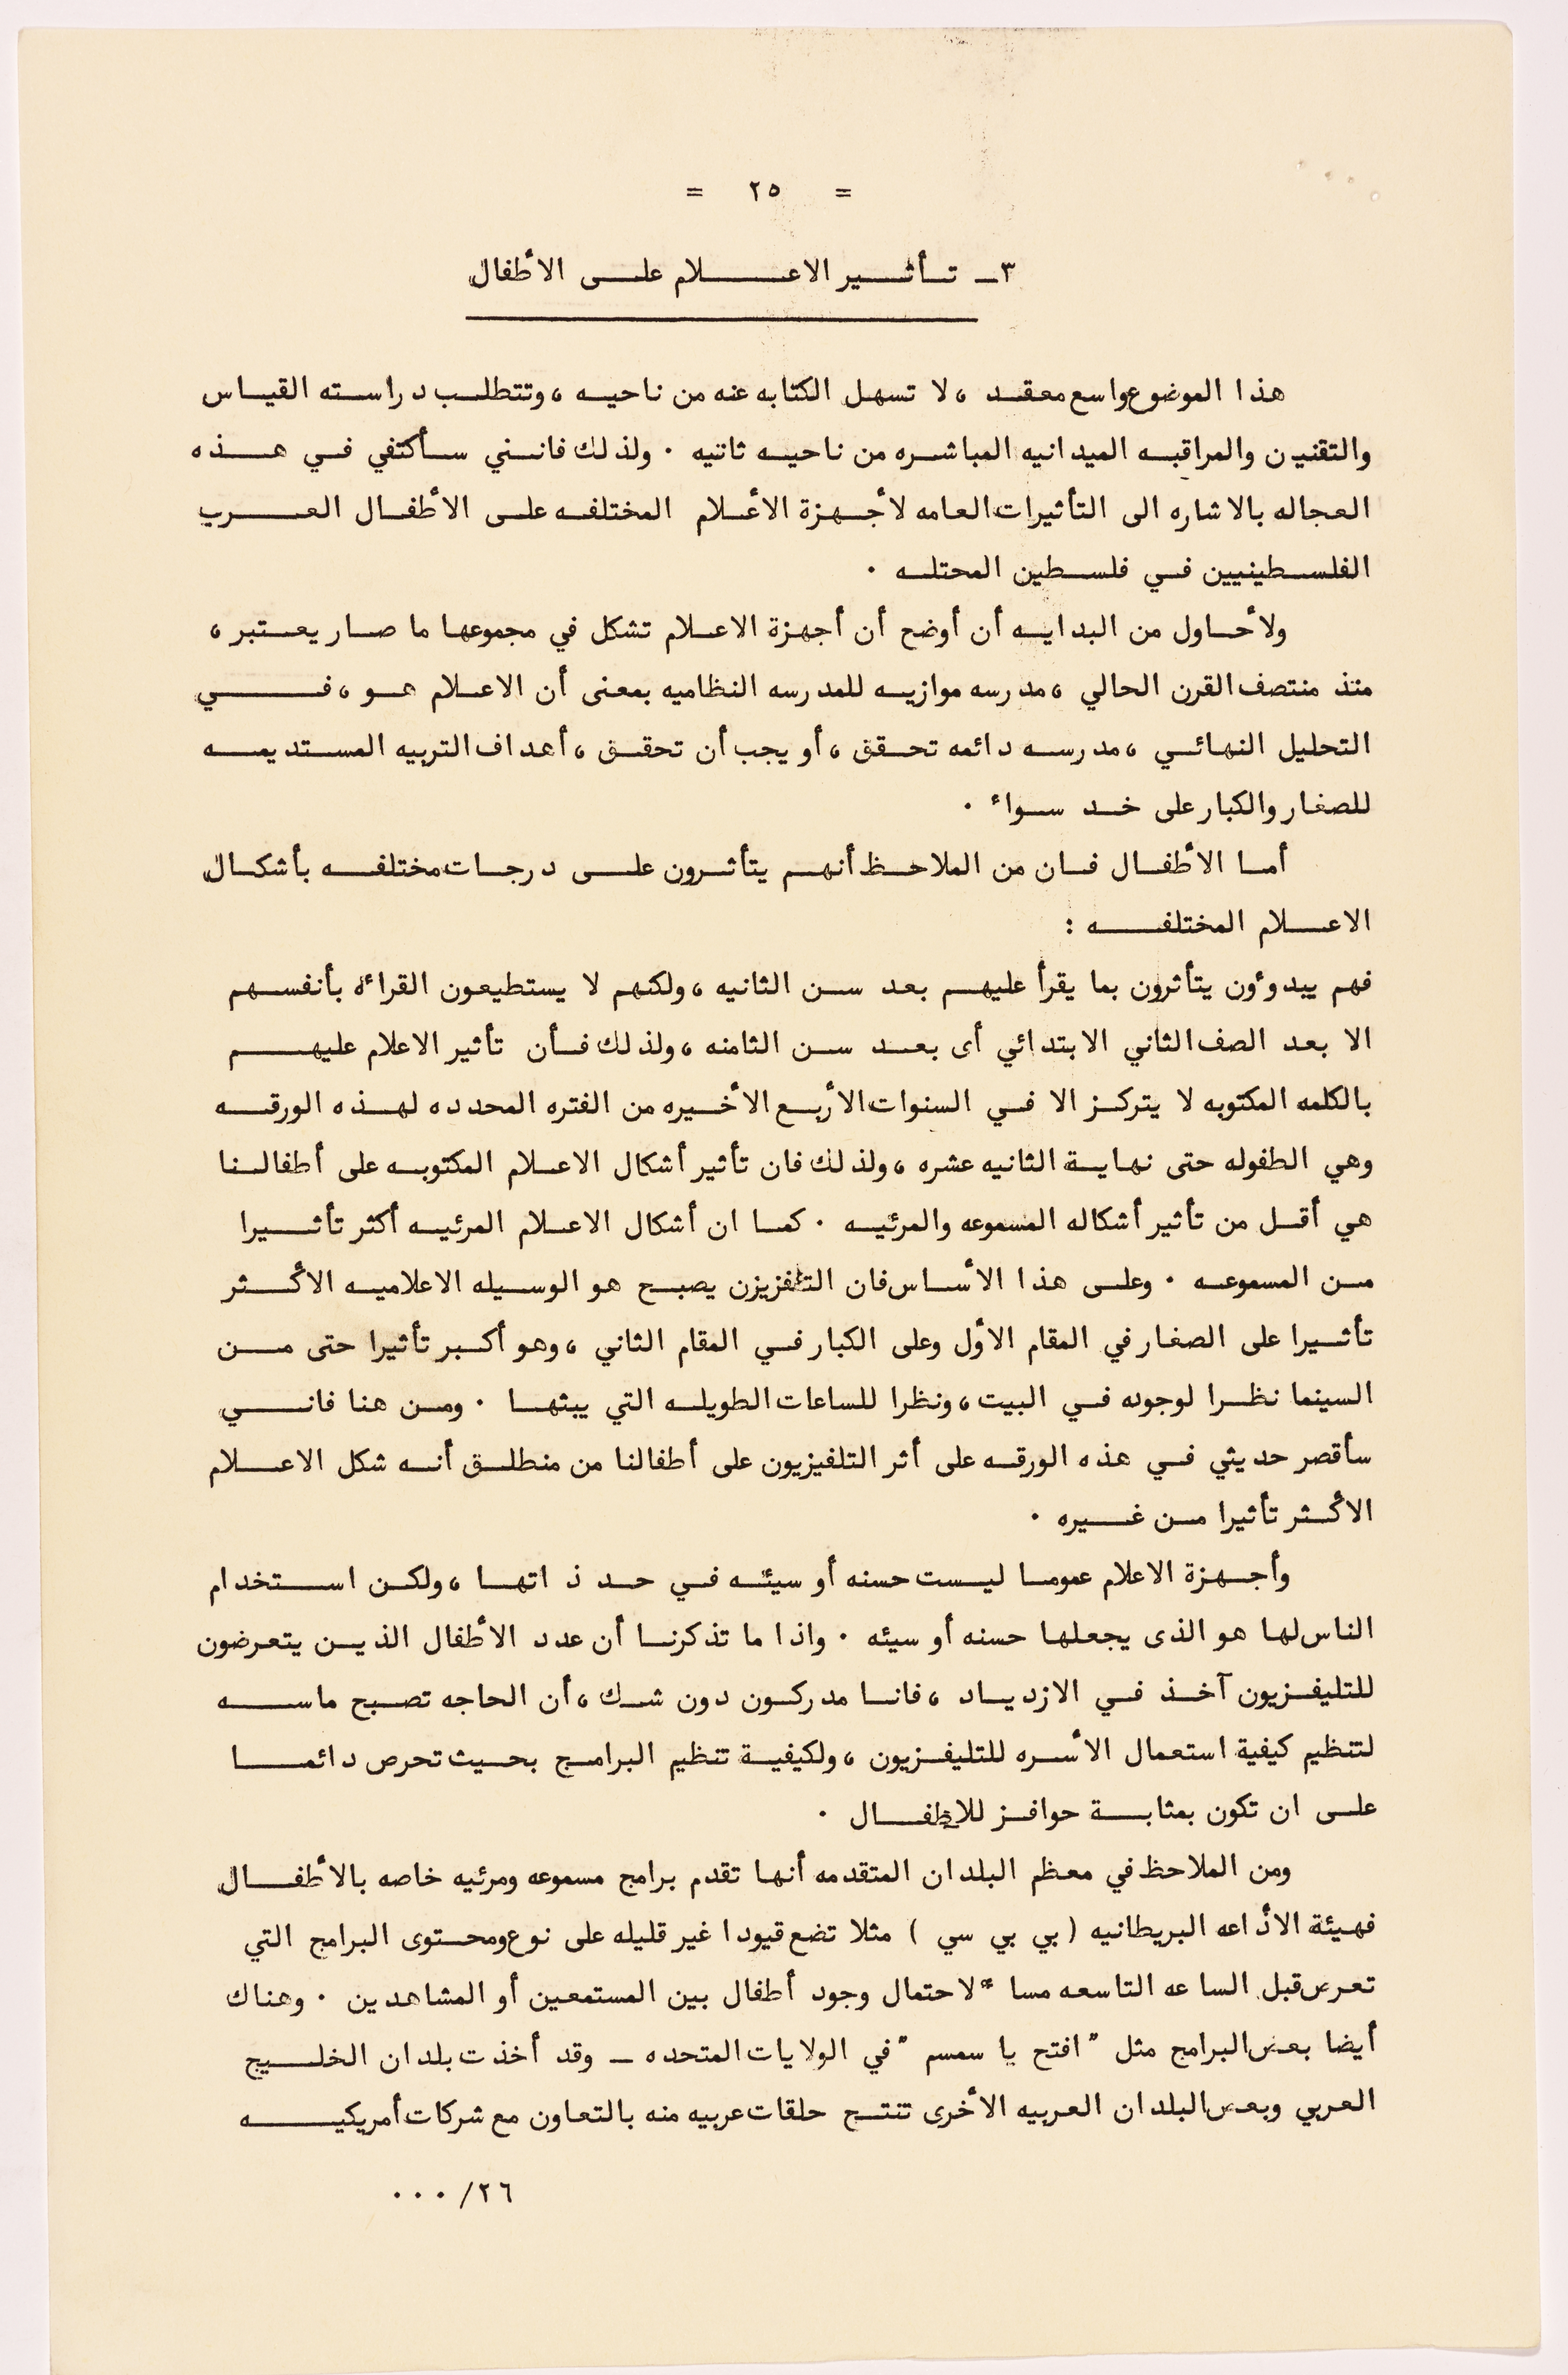 = ٢٥ =
٣ـ تـأثـير الاعـلام علـى الأطفال
هذا الموضوع واسع معقـد ، لا تسهـل الكتابه عنه من ناحيـه ، وتتطلـب دراسـته القيـاس
والتقنين والمراقبـه الميدانيه المباشـره من ناحيـه ثانيه . ولذلك فانـني سـأكتفي فـي هـذه
العجاله بالاشاره الى التأثيرات العامه لأجـهـزة الأعـلام المختلفـه علـى الأطفـال العـرب
الفلسـطينيين فـي فلسـطين المحتلـه .
ولأحـاول من البدايـه أن أوضح أن أجهزة الاعـلام تشكل في مجموعهـا ما صـار يعـتبر ،
منذ منتصف القرن الحالي ، مدرسه موازيـه للمدرسه النظاميه بمعنى أن الاعـلام هـو ، فـي
التحليل النهائـي ، مدرسـه دائمه تحـقق ، أو يجب أن تحقـق ، أهداف التربيه المسـتديمـه
للصغار والكبار على خـد سـواء .
أمـا الأطفـال فـان من الملاحـظ أنهـم يتأثـرون علـى درجـات مختلفـه بأشكـال
الاعـلام المختلفـه :
فهم يبدوءون يتأثرون بما يقرأ عليهـم بعد سـن الثانيه ، ولكنهم لا يستطيعون القراءه بأنفسـهم
الا بعد الصف الثاني الابتدائي أى بعـد سـن الثامنه ، ولذلك فـأن تأثير الاعلام عليهـم
بالكلمه المكتوبه لا يتركـز الا فـي السنوات الأربـع الأخـيره من الفتره المحدده لهـذه الورقـه
وهي الطفوله حتى نهايـة الثانيه عشره ، ولذلك فان تأثير أشكال الاعـلام المكتوبـه على أطفالـنا
هي أقـل من تأثير أشكاله المسموعه والمرئيـه . كمـا ان أشكال الاعـلام المرئيـه أكثر تأثـيرا
مـن المسموعـه . وعلـى هذا الأسـاس فان التلفزيزن يصبـح هو الوسـيله الاعلاميـه الأكـثر
تأثـيرا على الصغار في المقام الأول وعلى الكبار فـي المقام الثاني ، وهو أكـبر تأثيرا حتى مـن
السينما نظـرا لوجوده فـي البيت ، ونظرا للساعات الطويلـه التي يبثهـا . ومـن هنا فانـي
سأقصر حديثي فـي هذه الورقـه على أثر التلفيزيون على أطفالنا من منطلـق أنـه شكل الاعـلام
الأكـثر تأثيرا مـن غـيره .
وأجـهـزة الاعلام عمومـا ليـست حسنه أو سيئـه فـي حـد ذاتهـا ، ولكـن اسـتخدام
الناس لهـا هو الذى يجعلهـا حسنه أو سيئه . واذا ما تذكرنـا أن عدد الأطفال الذيـن يتعرضون
للتليفـزيون آخـذ فـي الازديـاد ، فانـا مدركـون دون شـك ، أن الحاجه تصـبح ماسـه
لتنظيم كيفية استعمال الأسـره للتليفـزيون ، ولكيفيـة تنظيم البرامـج بحـيث تحرص دائمـا
علـى ان تكون بمثابـة حوافـز للاطفـال .
ومن الملاحظ في معظم البلدان المتقدمه أنهـا تقدم برامج مسموعه ومرئيه خاصه بالأطفـال
فهـيئة الأذاعه البريطانيه ( بي بي سي ) مثلا تضع قيودا غير قليله على نوع ومحـتوى البرامج التي
تعرض قبل الساعه التاسعه مساءً لاحتمال وجود أطفال بين المستمعين أو المشاهدين . وهناك
أيضا بعض البرامج مثل " افتح يا سمسم " في الولايات المتحده ـ وقد أخذت بلدان الخلـيج
العربي وبعض البلدان العربيه الأخرى تنتـج حلقات عربيه منه بالتعاون مع شركات أمريكيـه
٢٦/ . . .